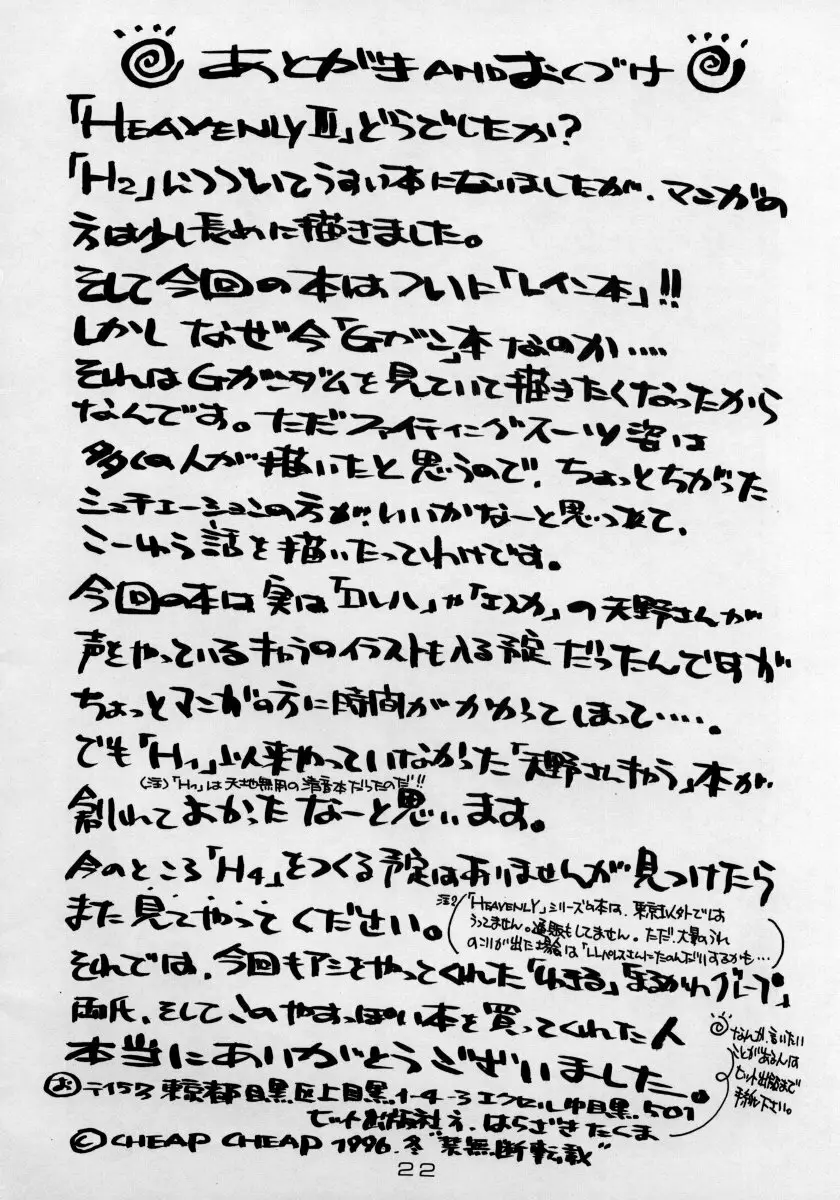 あとがきANDおくづけ
「HEAVENLYⅢ」どうでしたか?
「H2」につづいてうすい本になりましたが、マンガの
方は少し長めに描きました。
そして今回の本はついに「レイン本」!!
しかし なぜ今「Gガン」本なのか……
それはGガンダムを見ていて描きたくなったから
なんです。ただファイティングスーツ姿は
多くの人が描いたと思うので、ちょっとちがった
シュチェーションの方が、いいかなーと思って、
こーゆう話を描いたってわけです。
今回の本は実は「ロレル」や「エスカ」の天野さんが
声をやっているキャラのイラストも入る予定だったんですが
ちょっとマンガの方に時間がかかってしまって……。
でも「H1」以来やっていなかった「天野さんキャラ」本が
(注)「H1」は天地無用の清音本だったのだ!!
創れてよかったなーと思います。
今のところ「H4」をつくる予定はありませんが見つけたら
また見てやってください。
注2(「HEAVENLY」シリーズの本は、東京以外では
うってません。通販もしてません。ただ、大量のうれ
のこりが出た場合は「LLパレスさんにたのんだりするかも…)
それでは、今回もアシをやってくれた「まるかわグループ」
両氏、そしてこのやすっぽい本を買ってくれた人
本当にありがとうございました。
なんか、言いたい
ことがあるんは
ヒット出版まで
手紙下さい。
お 〒153 東京都目黒区上目黒1-4-3エクセル中目黒501
ヒット出版社方、はらざきたくま
©CHEAP CHEAP 1996.冬"禁無断転載"
22